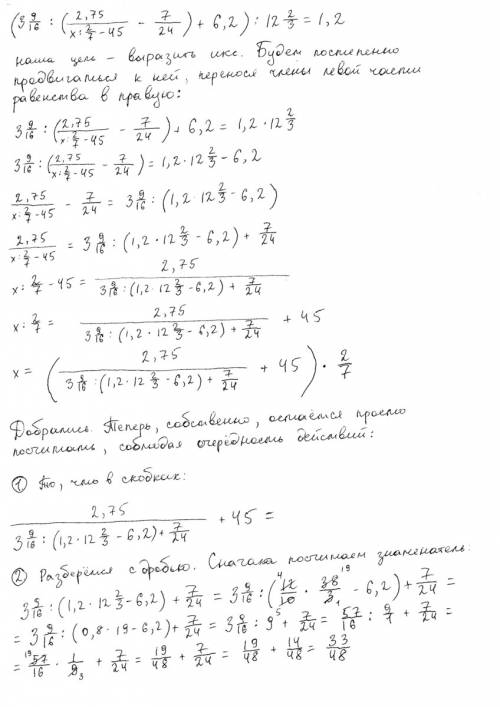 (3 9/16 : (2,75/(x : 2/7 - 45) - 7/24) + 6,2) : 12 2/3 = 1,2
наша цель – выразить икс. Будем постепенно
продвигаться к ней, перенося члены левой части
равенства в правую:
3 9/16 : (2,75/(x : 2/7 - 45) - 7/24) + 6,2 = 1,2 · 12 2/3
3 9/16 : (2,75/(x : 2/7 - 45) - 7/24) = 1,2 · 12 2/3 - 6,2
2,75/(x : 2/7 - 45) - 7/24 = 3 9/16 : (1,2 · 12 2/3 - 6,2)
2,75/(x : 2/7 - 45) = 3 9/16 : (1,2 · 12 2/3 - 6,2) + 7/24
x : 2/7 - 45 = 2,75/(3 9/16 : (1,2 · 12 2/3 - 6,2) + 7/24)
x : 2/7 = 2,75/(3 9/16 : (1,2 · 12 2/3 - 6,2) + 7/24) + 45
x = (2,75/(3 9/16 : (1,2 · 12 2/3 - 6,2) + 7/24) + 45) · 2/7
Добрались. Теперь, собственно, остаётся просто
посчитать, соблюдая очерёдность действий:
① То, что в скобках:
2,75/(3 9/16 : (1,2 · 12 2/3 - 6,2) + 7/24) + 45 =
② Разберёмся с дробью. Сначала посчитаем знаменатель:
3 9/16 : (1,2 · 12 2/3 - 6,2) + 7/24 = 3 9/16 : (12/10 · 38/3 - 6,2) + 7/24 =
= 3 9/16 : (0,8 · 19 - 6,2) + 7/24 = 3 9/16 : 9 + 7/24 = 57/16 : 9/1 + 7/24 =
= 57/16 · 1/9 + 7/24 = 19/48 + 7/24 = 19/48 + 14/48 = 33/48